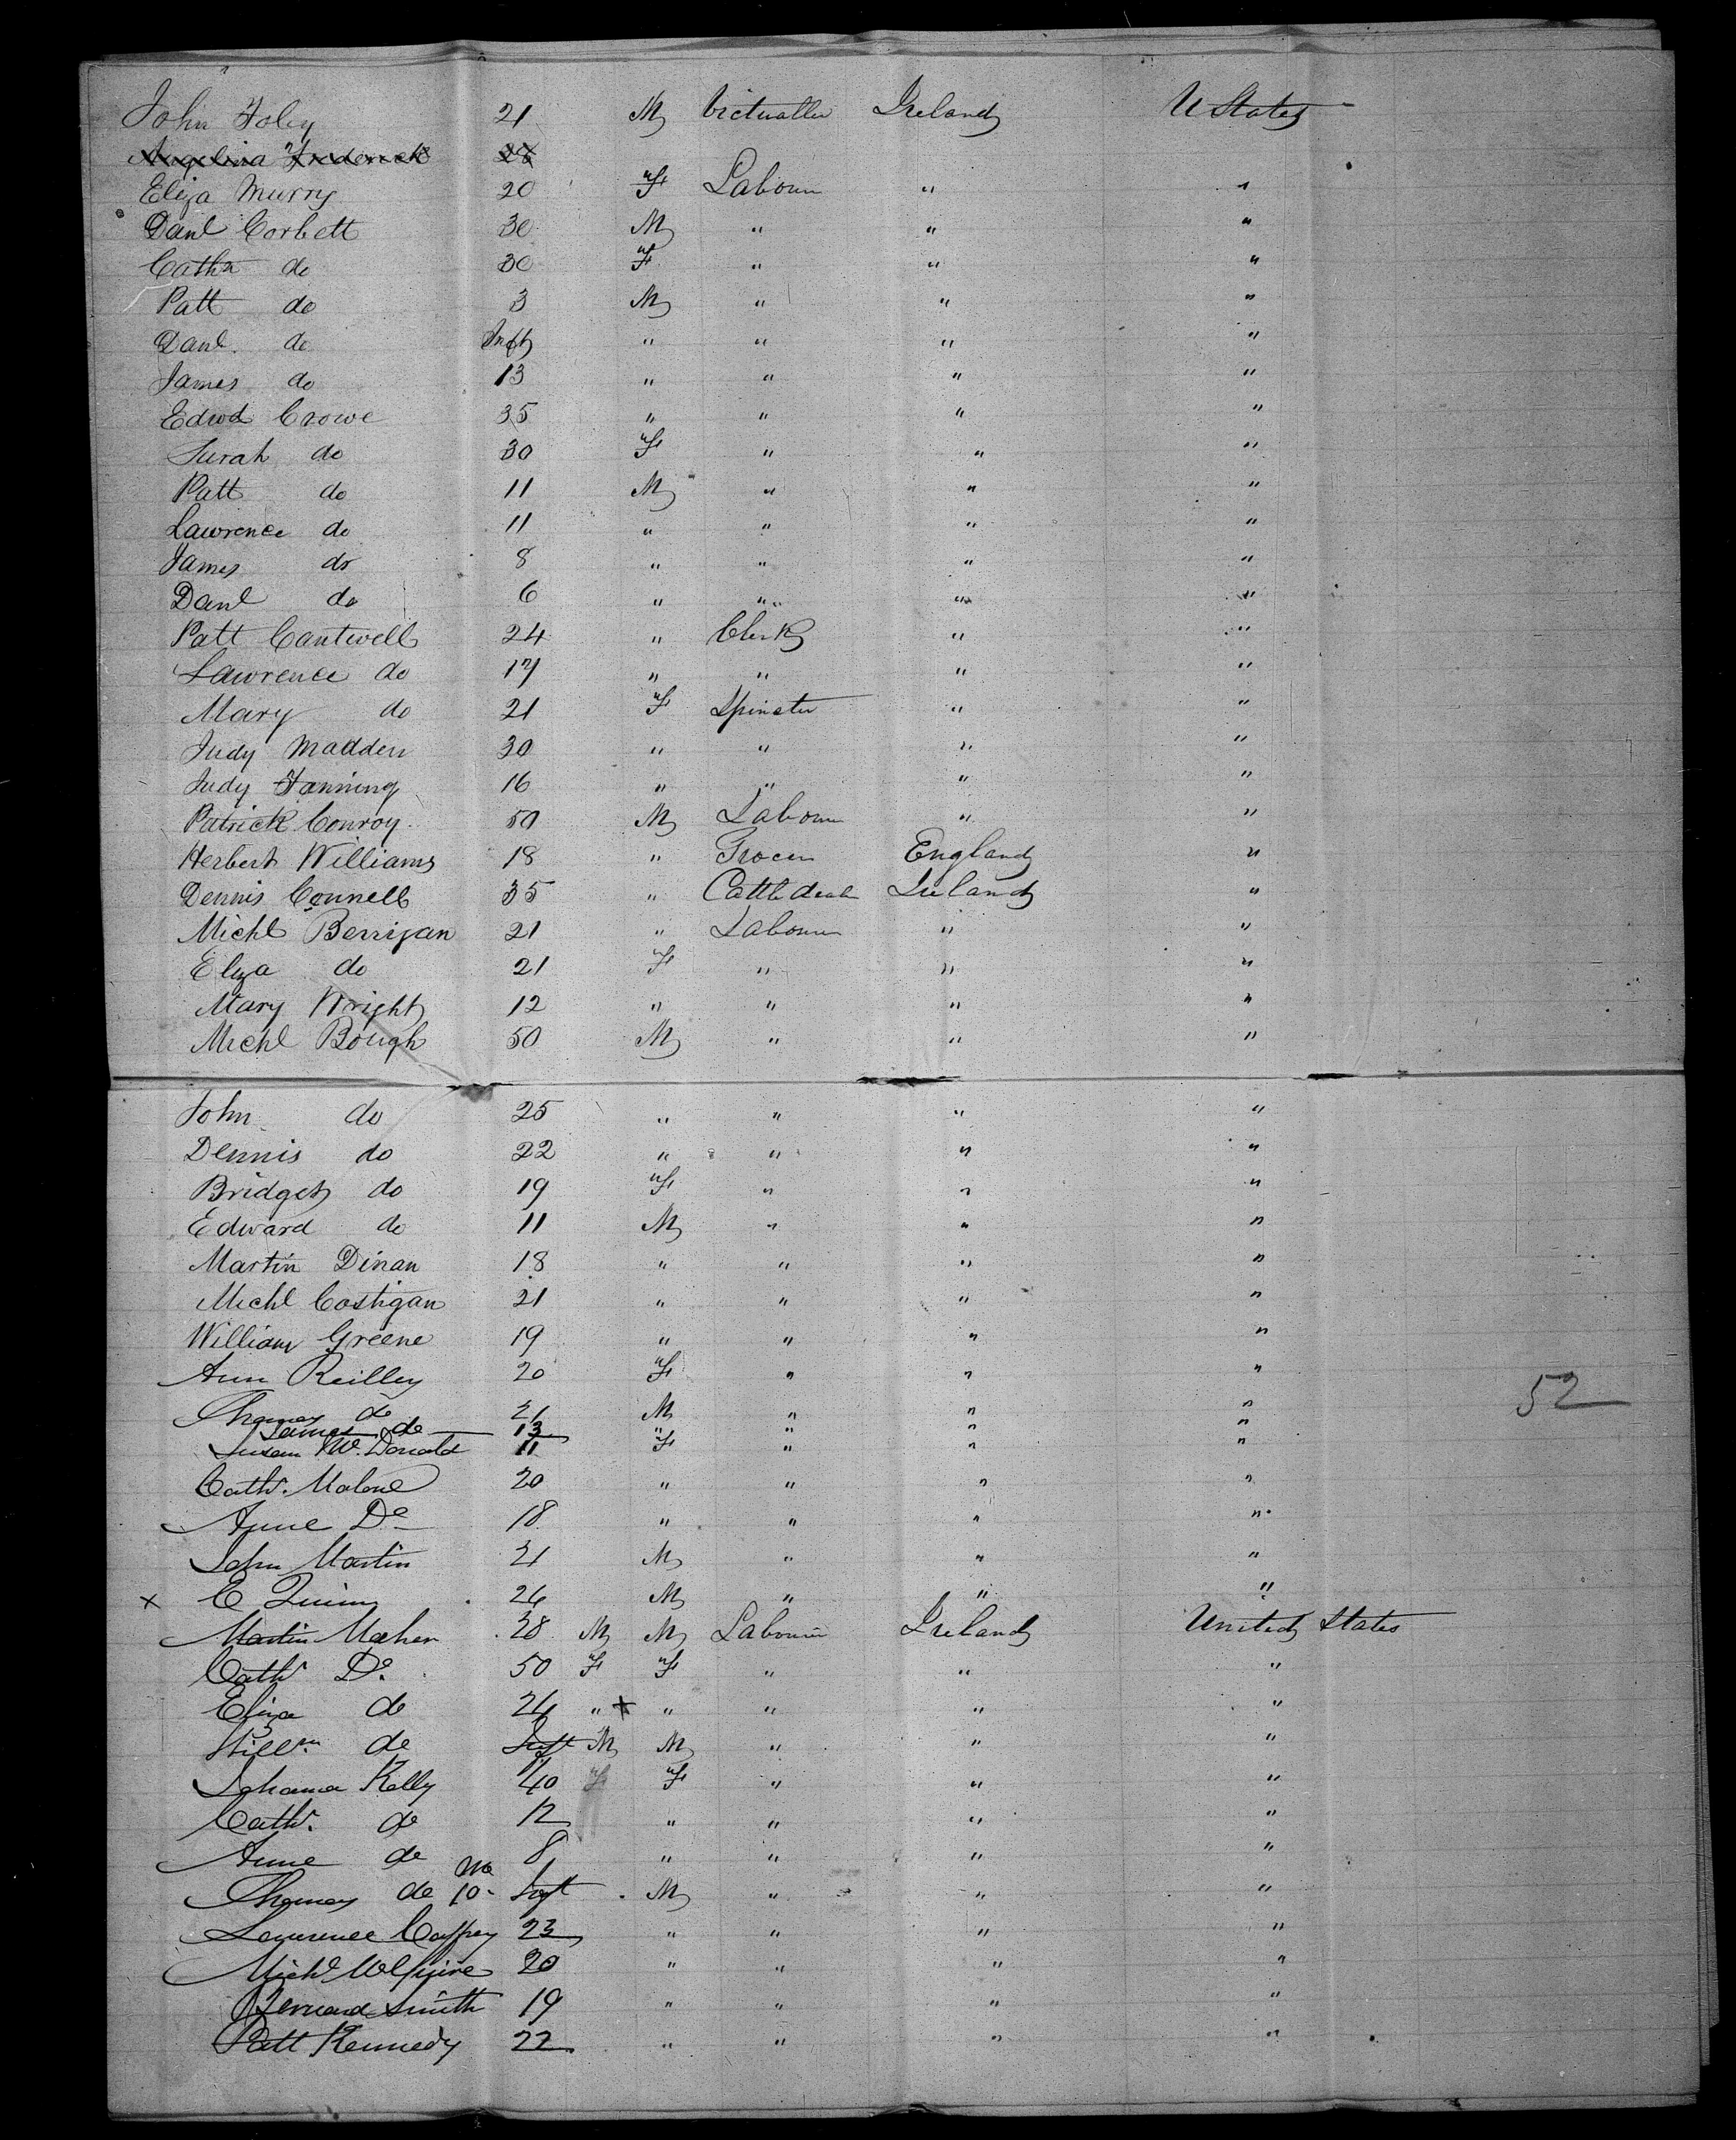 John Foley 21 M Victualler Ireland U States
Angelina Frederick 28
Eliza Murry 20 F Labourer " "
Danl Corbett 30 M " " "
Cathn do 30 F " " "
Patt do 3 M " " "
Danl. do Inft " " " "
James do 13 " " " "
Edwd Crowe 35 " " " "
Surah do 30 F " " "
Patt do 11 M " " "
Lawrence do 11 " " " "
James do 8 " " " "
Danl do 6 " " " "
Patt Cantwell 24 " Clerk " "
Lawrence do 17 " " " "
Mary do 21 F Spinster " "
Judy Madden 30 " " " "
Judy Fanning 16 " " " "
Patrick Conroy 50 M Labourer " "
Herbert Williams 18 " Grocer England "
Dennis Connell 35 " Cattle dealer Ireland "
Michl Berrigan 21 " Labourer " "
Eliza do 21 F " " "
Mary Wright 12 " " " "
Michl Bough 50 M " " "
John do 25 " " " "
Dennis do 22 " " " "
Bridget do 19 F " " "
Edward do 11 M " " "
Martin Dinan 18 " " " "
Michl Costigan 21 " " " "
William Greene 19 " " " "
Ann Reilley 20 F " " "
Thomas do 21 M " " "
James do 13 " " " "
Susan McDonald 11 F " " "
52
Cathr. Malone 20 " " " "
Anne Do 18 " " " "
John Martin 21 M " " "
x C Quinn 24 M " " "
Martin Maher 28 M M Labourer Ireland United States
Cathr Do. 50 F F " " "
Eliza do 24 " x " " " "
Willm do Inft M M " " "
Johanna Kelly 40 F F " " "
Cathr. do 12 " " " "
Anne do 8 " " " "
Thomas do 10 mo Inft M " " "
Lawrence Caffrey 23 " " " "
Michl McGuire 20 " " " "
Bernard Smith 19 " " " "
Patt Kennedy 22 " " " "